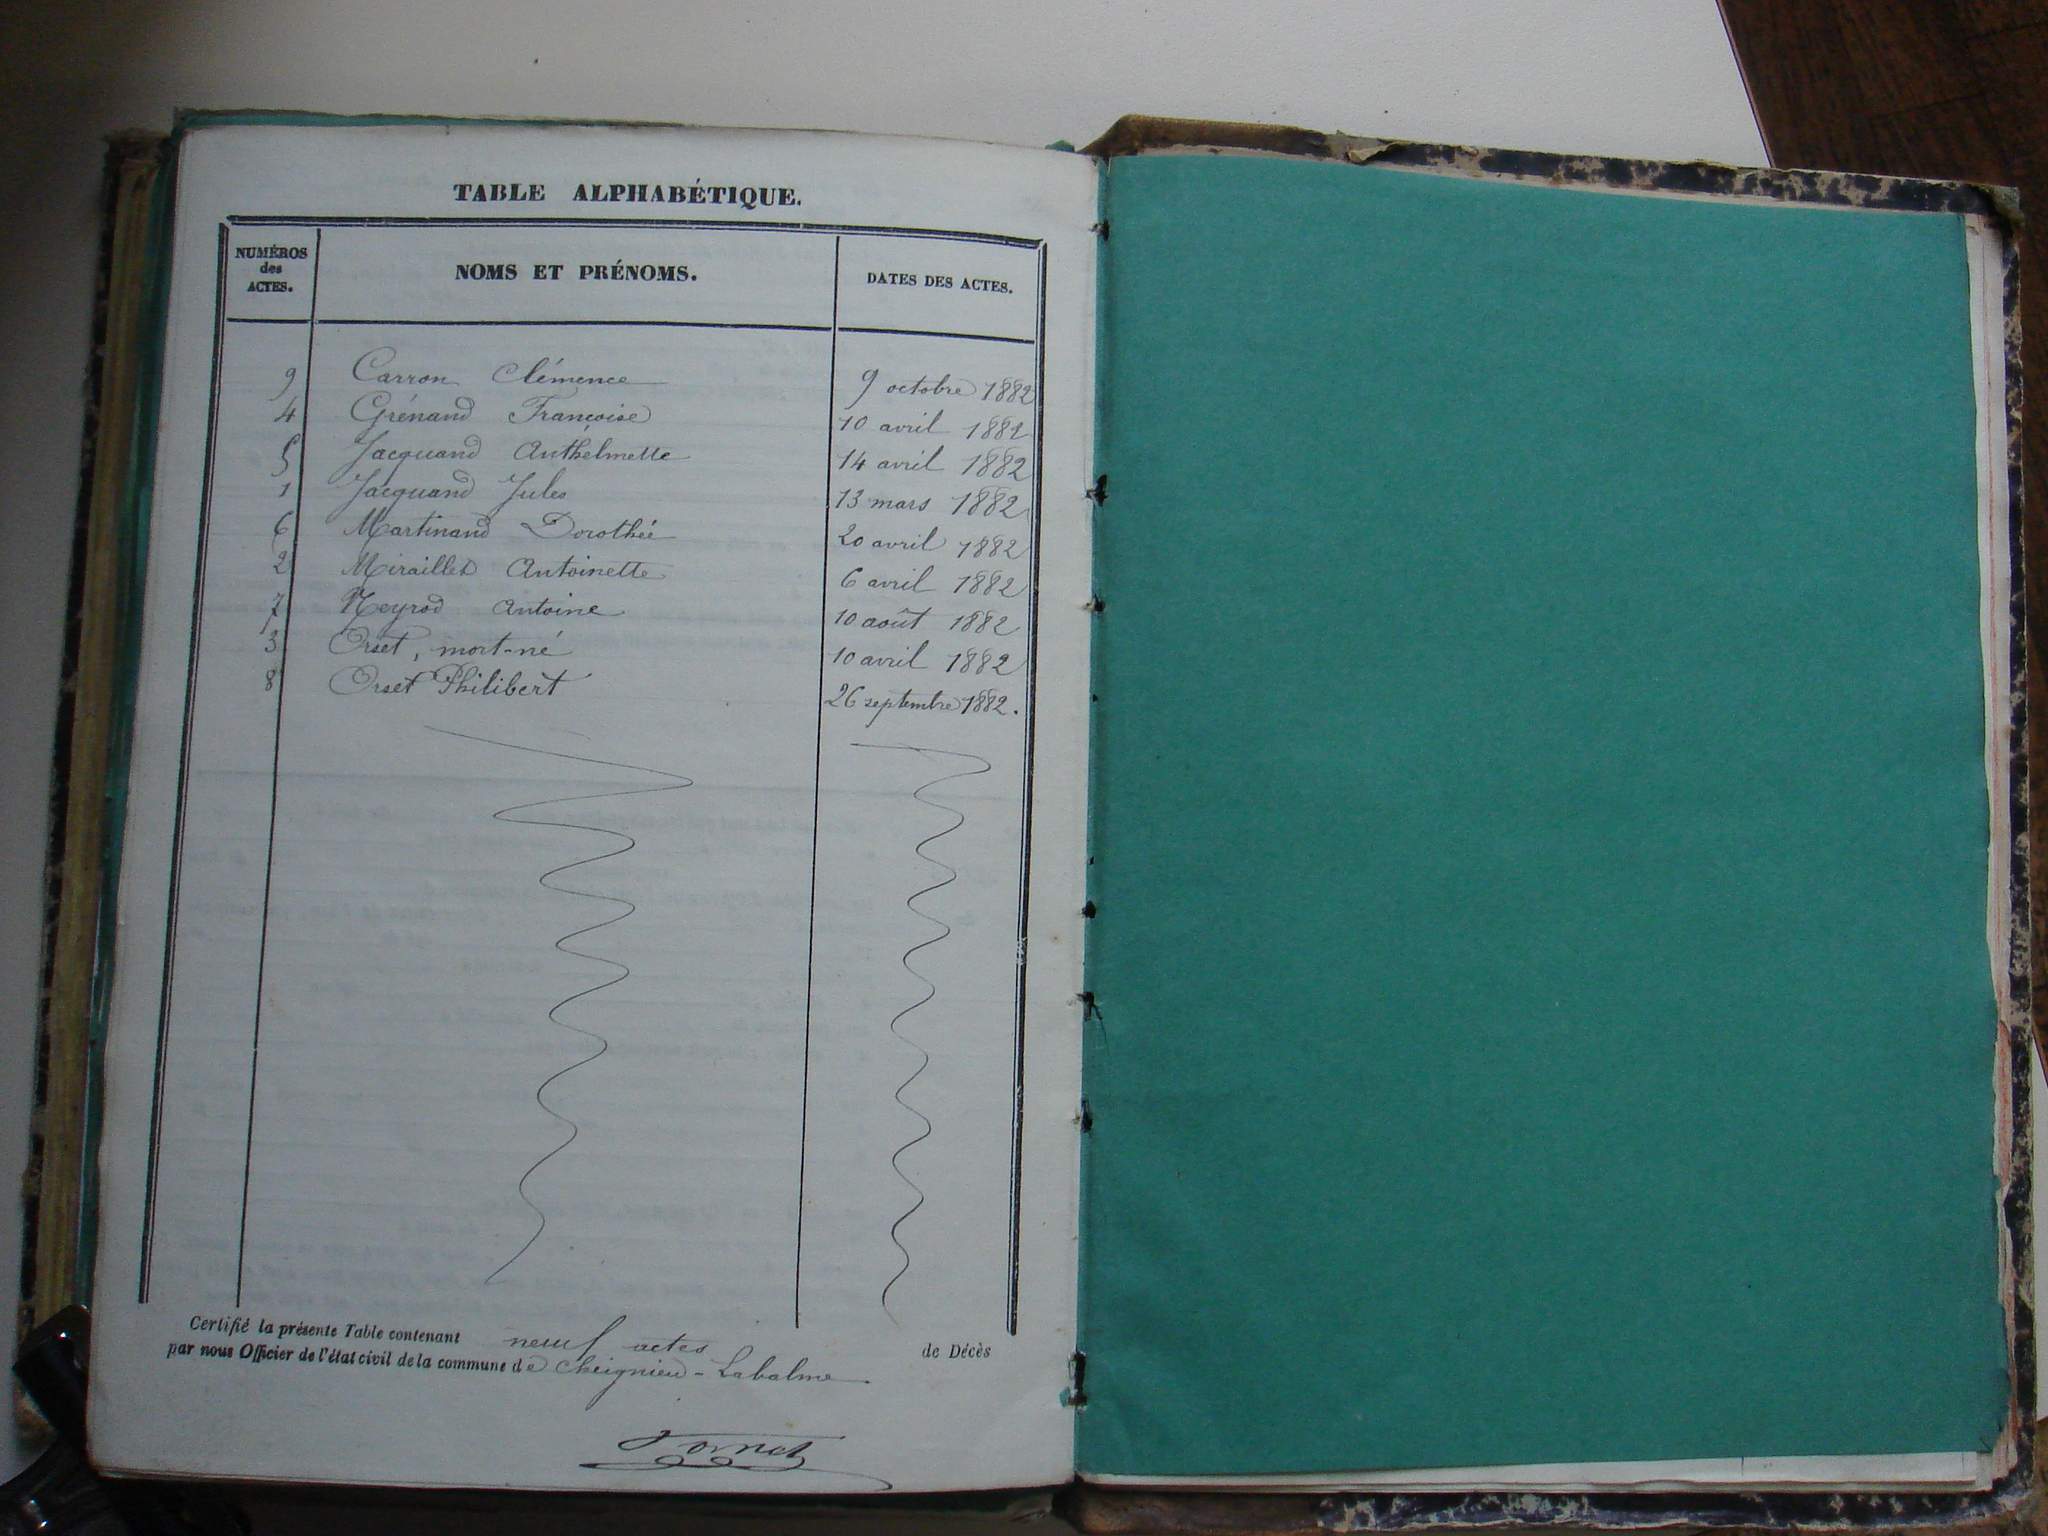 TABLE ALPHABÉTIQUE.
NUMÉROS
des
ACTES.
NOMS ET PRÉNOMS.
DATES DES ACTES.
9 Carron Clémence 9 octobre 1882
4 Grénand Françoise 10 avril 1882
5 Jacquand Anthelmette 14 avril 1882
1 Jacquand Jules 13 mars 1882
6 Martinand Dorothée 20 avril 1882
2 Miraillet Antoinette 6 avril 1882
7 Neyrod Antoine 10 août 1882
3 Orset, mort-né 10 avril 1882
8 Orset Philibert 26 septembre 1882.
Certifié la présente Table contenant neuf actes de Décès
par nous Officier de l'état civil de la commune de Cheignieu-Labalme.